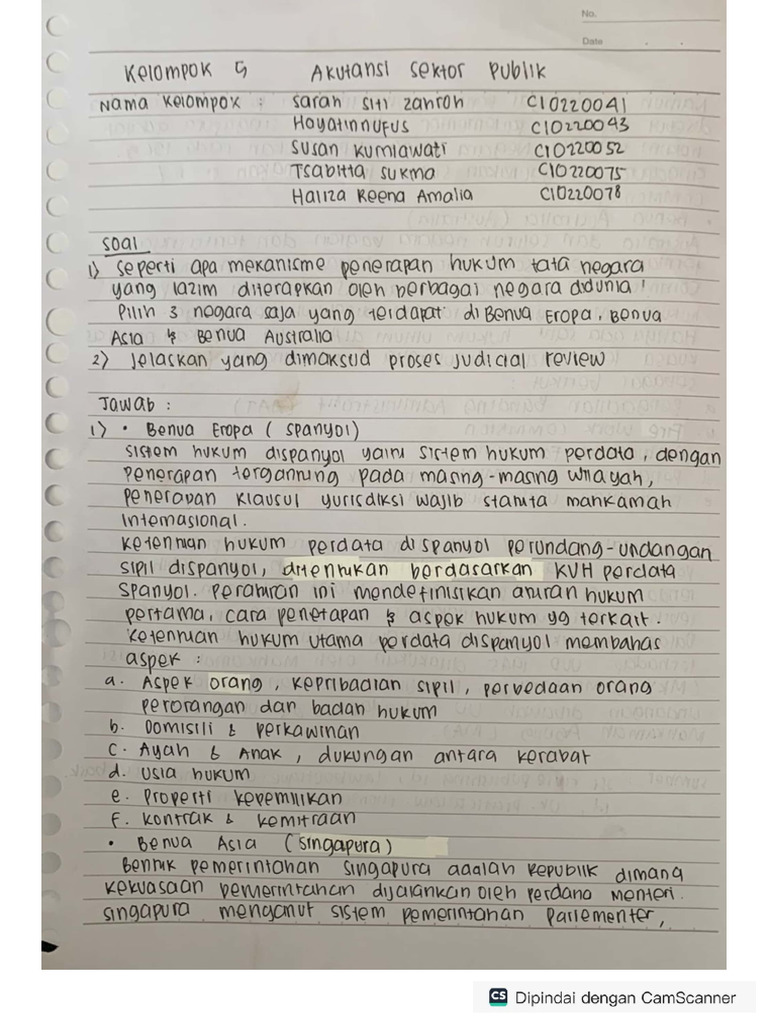 No.
Date
Kelompok 5 Akutansi Sektor Publik
Nama Kelompok : Sarah Siti Zahroh C10220041
Hayatinnufus C10220043
Susan Kurniawati C10220052
Tsabitta Sukma C10220075
Haliza Reena Amalia C10220078
Soal
1) Seperti apa mekanisme penerapan hukum tata negara
yang lazim diterapkan oleh berbagai negara didunia!
Pilih 3 negara saja yang terdapat di Benua Eropa, Benua
Asia & Benua Australia
2) Jelaskan yang dimaksud proses judicial review
Jawab :
1) • Benua Eropa ( Spanyol)
Sistem hukum dispanyol yaitu sistem hukum perdata, dengan
penerapan tergantung pada masing-masing wilayah,
penerapan klausul yurisdiksi wajib statuta mahkamah
Internasional.
Ketentuan hukum perdata di spanyol perundang-undangan
sipil dispanyol, ditentukan berdasarkan KUH perdata
Spanyol. Peraturan ini mendefinisikan aturan hukum
pertama, cara penetapan & aspek hukum yg terkait.
Ketentuan hukum utama perdata dispanyol membahas
aspek :
a. Aspek orang, kepribadian sipil, perbedaan orang
perorangan dan badan hukum
b. Domisili & perkawinan
c. Ayah & Anak, dukungan antara kerabat
d. usia hukum
e. Properti kepemilikan
f. Kontrak & kemitraan
• Benua Asia (Singapura)
Bentuk pemerintahan Singapura adalah Republik dimana
kekuasaan pemerintahan dijalankan oleh perdana menteri.
Singapura menganut sistem pemerintahan Parlementer,
CS Dipindai dengan CamScanner